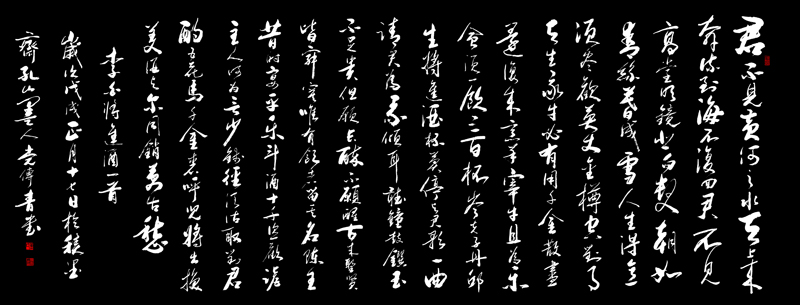 君不見黃河之水天上來
奔流到海不復回君不見
高堂明鏡悲白髮朝如
青絲暮成雪人生得意
須盡歡莫使金樽空對月
天生我材必有用千金散盡
還復來烹羊宰牛且為樂
會須一飲三百杯岑夫子丹邱
生將進酒杯莫停與君歌一曲
請君為我傾耳聽鐘鼓饌玉
不足貴但願長醉不願醒古來聖賢
皆寂寞惟有飲者留其名陳王
昔時宴平樂斗酒十千恣歡謔
主人何為言少錢徑須沽取對君
酌五花馬千金裘呼兒將出換
美酒與爾同銷萬古愁
李白將進酒一首
歲次戊戌正月十七日於積墨
齋孔山墨人書